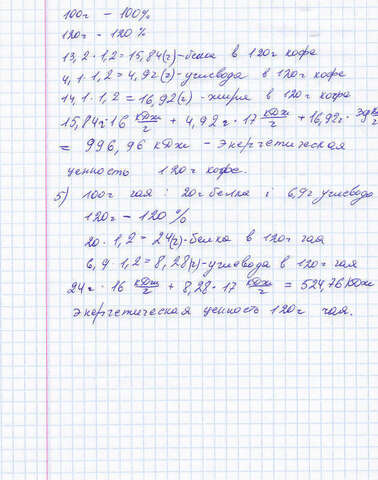 100г – 100%
120г – 120%
13,2 · 1,2 = 15,84(г)-белка в 120г кофе
4,1 · 1,2 = 4,92(г)-углевода в 120г кофе
14,1 · 1,2 = 16,92(г) - жира в 120г кофе
15,84г·16 кДж/г + 4,92г · 17 кДж/г + 16,92г ·
= 996,96 кДж – энергетическая
ценность 120г кофе.
5) 100г чая : 20г белка и 6,9г углевода
120г – 120%
20 · 1,2 = 24(г)-белка в 120г чая
6,9 · 1,2 = 8,28(г)-углевода в 120г чая
24г · 16 кДж/г + 8,28 · 17 кДж/г = 524,76 кДж
энергетическая ценность 120г чая.